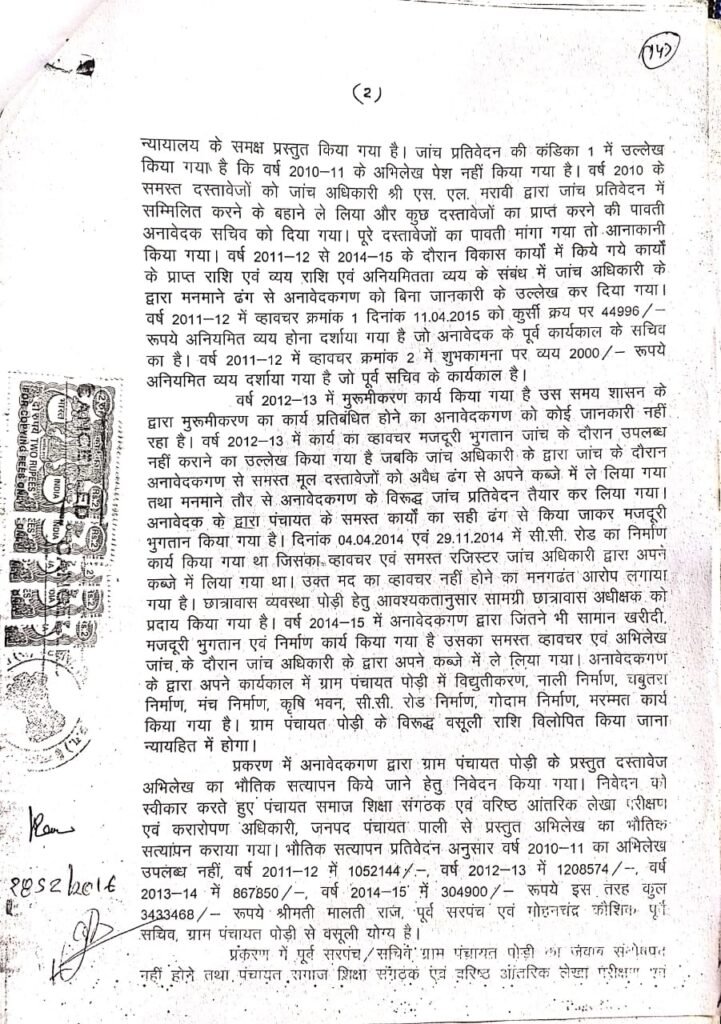 147
(2)
न्यायालय के समक्ष प्रस्तुत किया गया है। जांच प्रतिवेदन की कंडिका 1 में उल्लेख
किया गया है कि वर्ष 2010–11 के अभिलेख पेश नहीं किया गया है। वर्ष 2010 के
समस्त दस्तावेजों को जांच अधिकारी श्री एस. एल. मरावी द्वारा जांच प्रतिवेदन में
सम्मिलित करने के बहाने ले लिया और कुछ दस्तावेजों का प्राप्त करने की पावती
अनावेदक सचिव को दिया गया। पूरे दस्तावेजों का पावती मांगा गया तो आनाकानी
किया गया। वर्ष 2011–12 से 2014–15 के दौरान विकास कार्यो में किये गये कार्यों
के प्राप्त राशि एवं व्यय राशि एवं अनियमितता व्यय के संबंध में जांच अधिकारी के
द्वारा मनमाने ढंग से अनावेदकगण को बिना जानकारी के उल्लेख कर दिया गया।
वर्ष 2011–12 में व्हावचर क्रमांक 1 दिनांक 11.04.2015 को कुर्सी क्रय पर 44996/–
रूपये अनियमित व्यय होना दर्शाया गया है जो अनावेदक के पूर्व कार्यकाल के सचिव
का है। वर्ष 2011–12 में व्हावचर क्रमांक 2 में शुभकामना पर व्यय 2000/– रूपये
अनियमित व्यय दर्शाया गया है जो पूर्व सचिव के कार्यकाल है।
वर्ष 2012–13 में मुरूमीकरण कार्य किया गया है उस समय शासन के
द्वारा मुरूमीकरण का कार्य प्रतिबंधित होने का अनावेदकगण को कोई जानकारी नहीं
रहा है। वर्ष 2012–13 में कार्य का व्हावचर मजदूरी भुगतान जांच के दौरान उपलब्ध
नहीं कराने का उल्लेख किया गया है जबकि जांच अधिकारी के द्वारा जांच के दौरान
अनावेदकगण से समस्त मूल दस्तावेजों को अवैध ढंग से अपने कब्जे में ले लिया गया
तथा मनमाने तौर से अनावेदकगण के विरूद्ध जांच प्रतिवेदन तैयार कर लिया गया।
अनावेदक के द्वारा पंचायत के समस्त कार्यों का सही ढंग से किया जाकर मजदूरी
भुगतान किया गया है। दिनांक 04.04.2014 एवं 29.11.2014 में सी.सी. रोड का निर्माण
कार्य किया गया था जिसका व्हावचर एवं समस्त रजिस्टर जांच अधिकारी द्वारा अपने
कब्जे में लिया गया था। उक्त मद का व्हावचर नहीं होने का मनगढंत आरोप लगाया
गया है। छात्रावास व्यवस्था पोड़ी हेतु आवश्यकतानुसार सामग्री छात्रावास अधीक्षक को
प्रदाय किया गया है। वर्ष 2014–15 में अनावेदकगण द्वारा जितने भी सामान खरीदी,
मजदूरी भुगतान एवं निर्माण कार्य किया गया है उसका समस्त व्हावचर एवं अभिलेख
जांच के दौरान जांच अधिकारी के द्वारा अपने कब्जे में ले लिया गया। अनावेदकगण
के द्वारा अपने कार्यकाल में ग्राम पंचायत पोड़ी में विद्युतीकरण, नाली निर्माण, चबुतरा
निर्माण, मंच निर्माण, कृषि भवन, सी.सी. रोड निर्माण, गोदाम निर्माण, मरम्मत कार्य
किया गया है। ग्राम पंचायत पोड़ी के विरूद्ध वसूली राशि विलोपित किया जाना
न्यायहित में होगा।
प्रकरण में अनावेदकगण द्वारा ग्राम पंचायत पोड़ी के प्रस्तुत दस्तावेज
अभिलेख का भौतिक सत्यापन किये जाने हेतु निवेदन किया गया। निवेदन को
स्वीकार करते हुए पंचायत समाज शिक्षा संगठक एवं वरिष्ठ आंतरिक लेखा परीक्षण
एवं करारोपण अधिकारी, जनपद पंचायत पाली से प्रस्तुत अभिलेख का भौतिक
सत्यापन कराया गया। भौतिक सत्यापन प्रतिवेदन अनुसार वर्ष 2010–11 का अभिलेख
उपलब्ध नहीं, वर्ष 2011–12 में 1052144/–, वर्ष 2012–13 में 1208574/–, वर्ष
2013–14 में 867850/–, वर्ष 2014–15 में 304900/– रूपये इस तरह कुल
3433468/– रूपये श्रीमती मालती राज, पूर्व सरपंच एवं मोहनचंद्र कौशिक पूर्व
सचिव, ग्राम पंचायत पोड़ी से वसूली योग्य है।
प्रकरण में पूर्व सरपंच/सचिव ग्राम पंचायत पोड़ी का जवाब संतोषप्रद
नहीं होने तथा पंचायत समाज शिक्षा संगठक एवं वरिष्ठ आंतरिक लेखा परीक्षण एवं
CANCELLED
TWO RUPEES
FOR COPYING FEES ONLY
INDIA